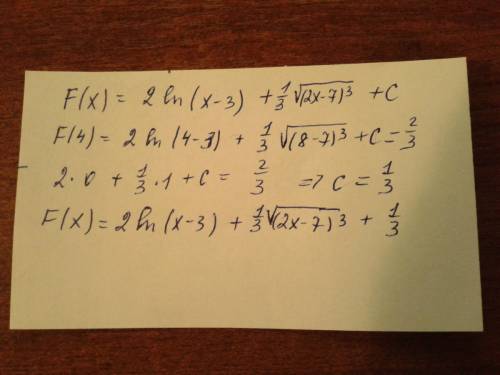 F(x) = 2 ln (x-3) + 1/3 √(2x-7)³ + C
F(4) = 2 ln (4-3) + 1/3 √(8-7)³ + C = 2/3
2·0 + 1/3·1 + C = 2/3 => C = 1/3
F(x) = 2 ln (x-3) + 1/3 √(2x-7)³ + 1/3